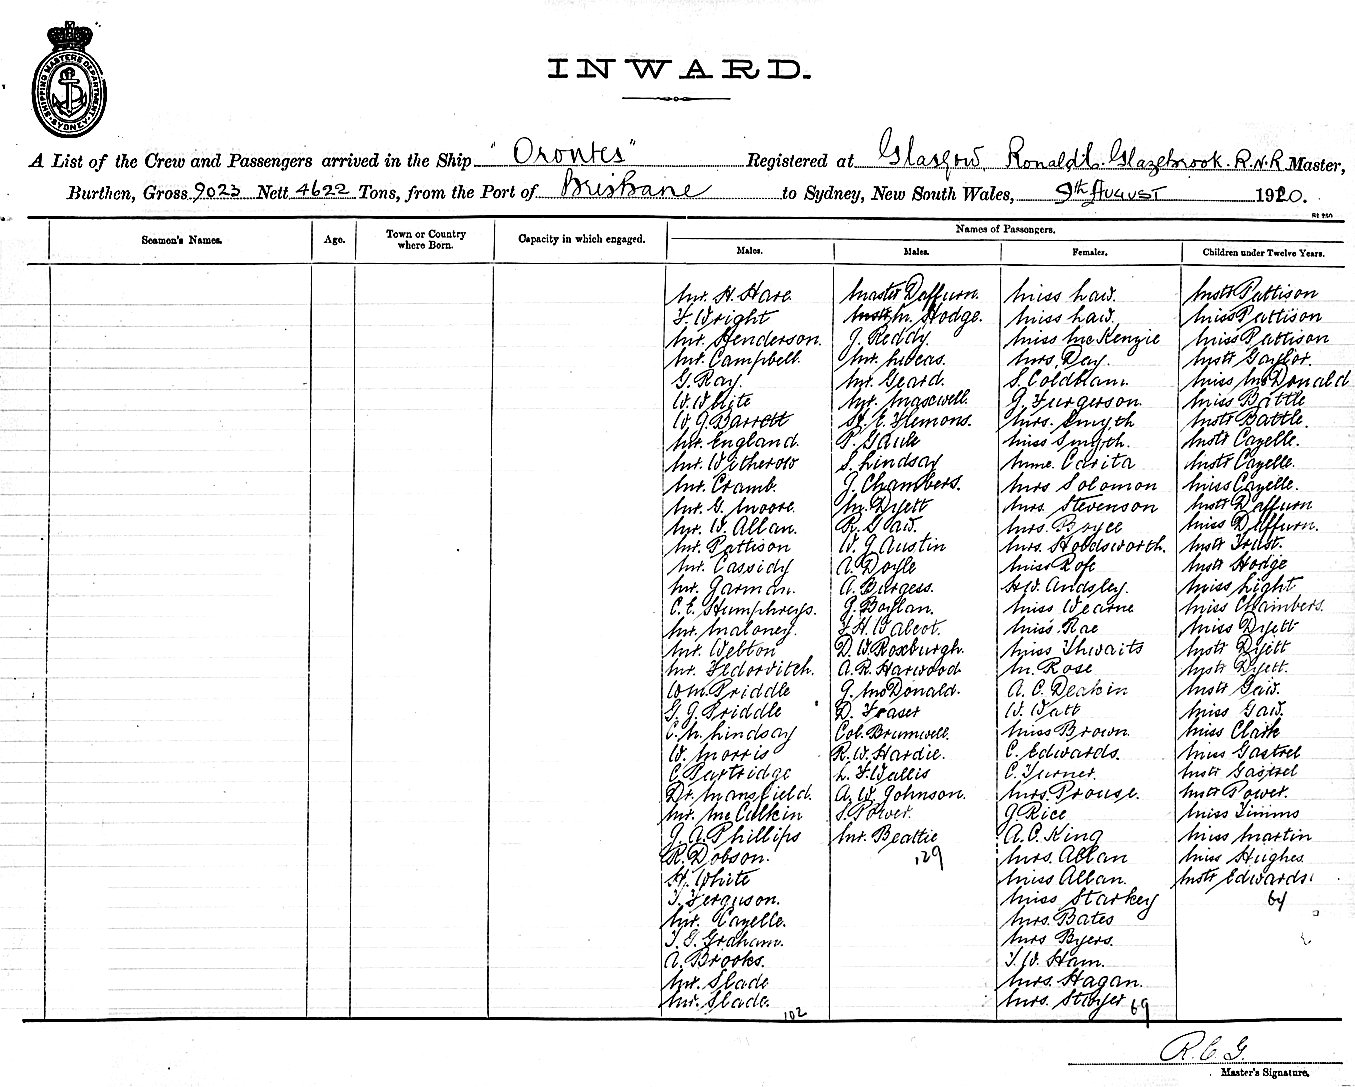 SHIPPING MASTERS DEPARTMENT SYDNEY
INWARD.
A List of the Crew and Passengers arrived in the Ship "Orontes" Registered at Glasgow, Ronald C. Glazebrook. R.N.R Master,
Burthen, Gross 9023 Nett 4622 Tons, from the Port of Brisbane to Sydney, New South Wales, 9th August 1920.
Seamen's Names.
Age.
Town or Country where Born.
Capacity in which engaged.
Names of Passengers.
Males.
Males.
Females.
Children under Twelve Years.
Mr. H. Hare.
F Wright
Mr. Henderson.
Mr. Campbell.
G. Ray.
W. White
W G Barrett
Mr. England.
Mr. Witherow
Mr. Cramb.
Mr. G. Moore.
Mr. W. Allan.
Mr. Pattison
Mr. Cassidy
Mr. Garman.
C. E. Humphreys.
Mr. Maloney.
Mr. Webton
Mr. Fedorvitch.
Wm. Priddle
G. J Priddle
C. M. Lindsay
W. Morris
C Partridge
Dr. Mansfield.
Mr. McCulkin
J. A. Phillips
R. Dobson.
H. White
T. Ferguson.
Mr. Cayelle.
T. E. Graham.
A. Brooks.
Mr. Slade
Mr. Slade.
102
Master Daffurn.
M. Hodge.
J. Reddy.
Mr. Lucas.
Mr. Geard.
Mr. Maxwell.
St. C. Flemons.
P. Gaule
S. Lindsay
J. Chambers.
M. Dyett
R. Gaw.
W. J Austin
A. Doyle
A. Burgess.
J. Boylan.
F. H. Walcot.
D. W Roxburgh.
A. R. Harwood
J. McDonald.
D. Fraser
Col. Brumwell.
R. W. Hardie.
L. F Wallis
A. W. Johnson.
S. Power.
Mr. Beattie
129
Miss Law.
Miss Law.
Miss McKenzie
Mrs. Day.
S. Coldham.
J. Furgerson.
Mrs. Smyth
Miss Smyth.
Mme. Carita
Mrs Solomon
Mrs. Stevenson
Mrs. Boyce
Mrs. Holdsworth.
Miss Rofe
H. W. Andsley.
Miss Wearne
Miss. Rae
Miss Thwaits
M. Rose
A. C. Deakin
W. Watt
Miss Brown.
C. Edwards.
C. Turner.
Mrs. Prouse.
J Rice
A. C. King
Mrs. Allan
Miss Allan.
Miss Starkey
Mrs. Bates
Mrs Byers.
T. W. Ham.
Mrs. Hagan.
Mrs. Stayer
69
Mstr Pattison
Miss Pattison
Miss Pattison
Mstr Gaylor.
Miss McDonald
Miss Battle
Mstr Battle.
Mstr Cayelle.
Mstr Cayelle.
Miss Cayelle.
Mstr Daffurn
Miss Daffurn.
Mstr Trust.
Mstr Hodge
Miss Light
Miss Chambers.
Miss Dyett
Mstr Dyett
Mstr Dyett.
Mstr Gaw.
Miss Gaw.
Miss Clark
Miss Gastrel
Mstr Gastrel
Mstr Power.
Miss Timms
Miss Martin
Miss Hughes
Mstr Edwards.
64
R. C. G.
Master's Signature.